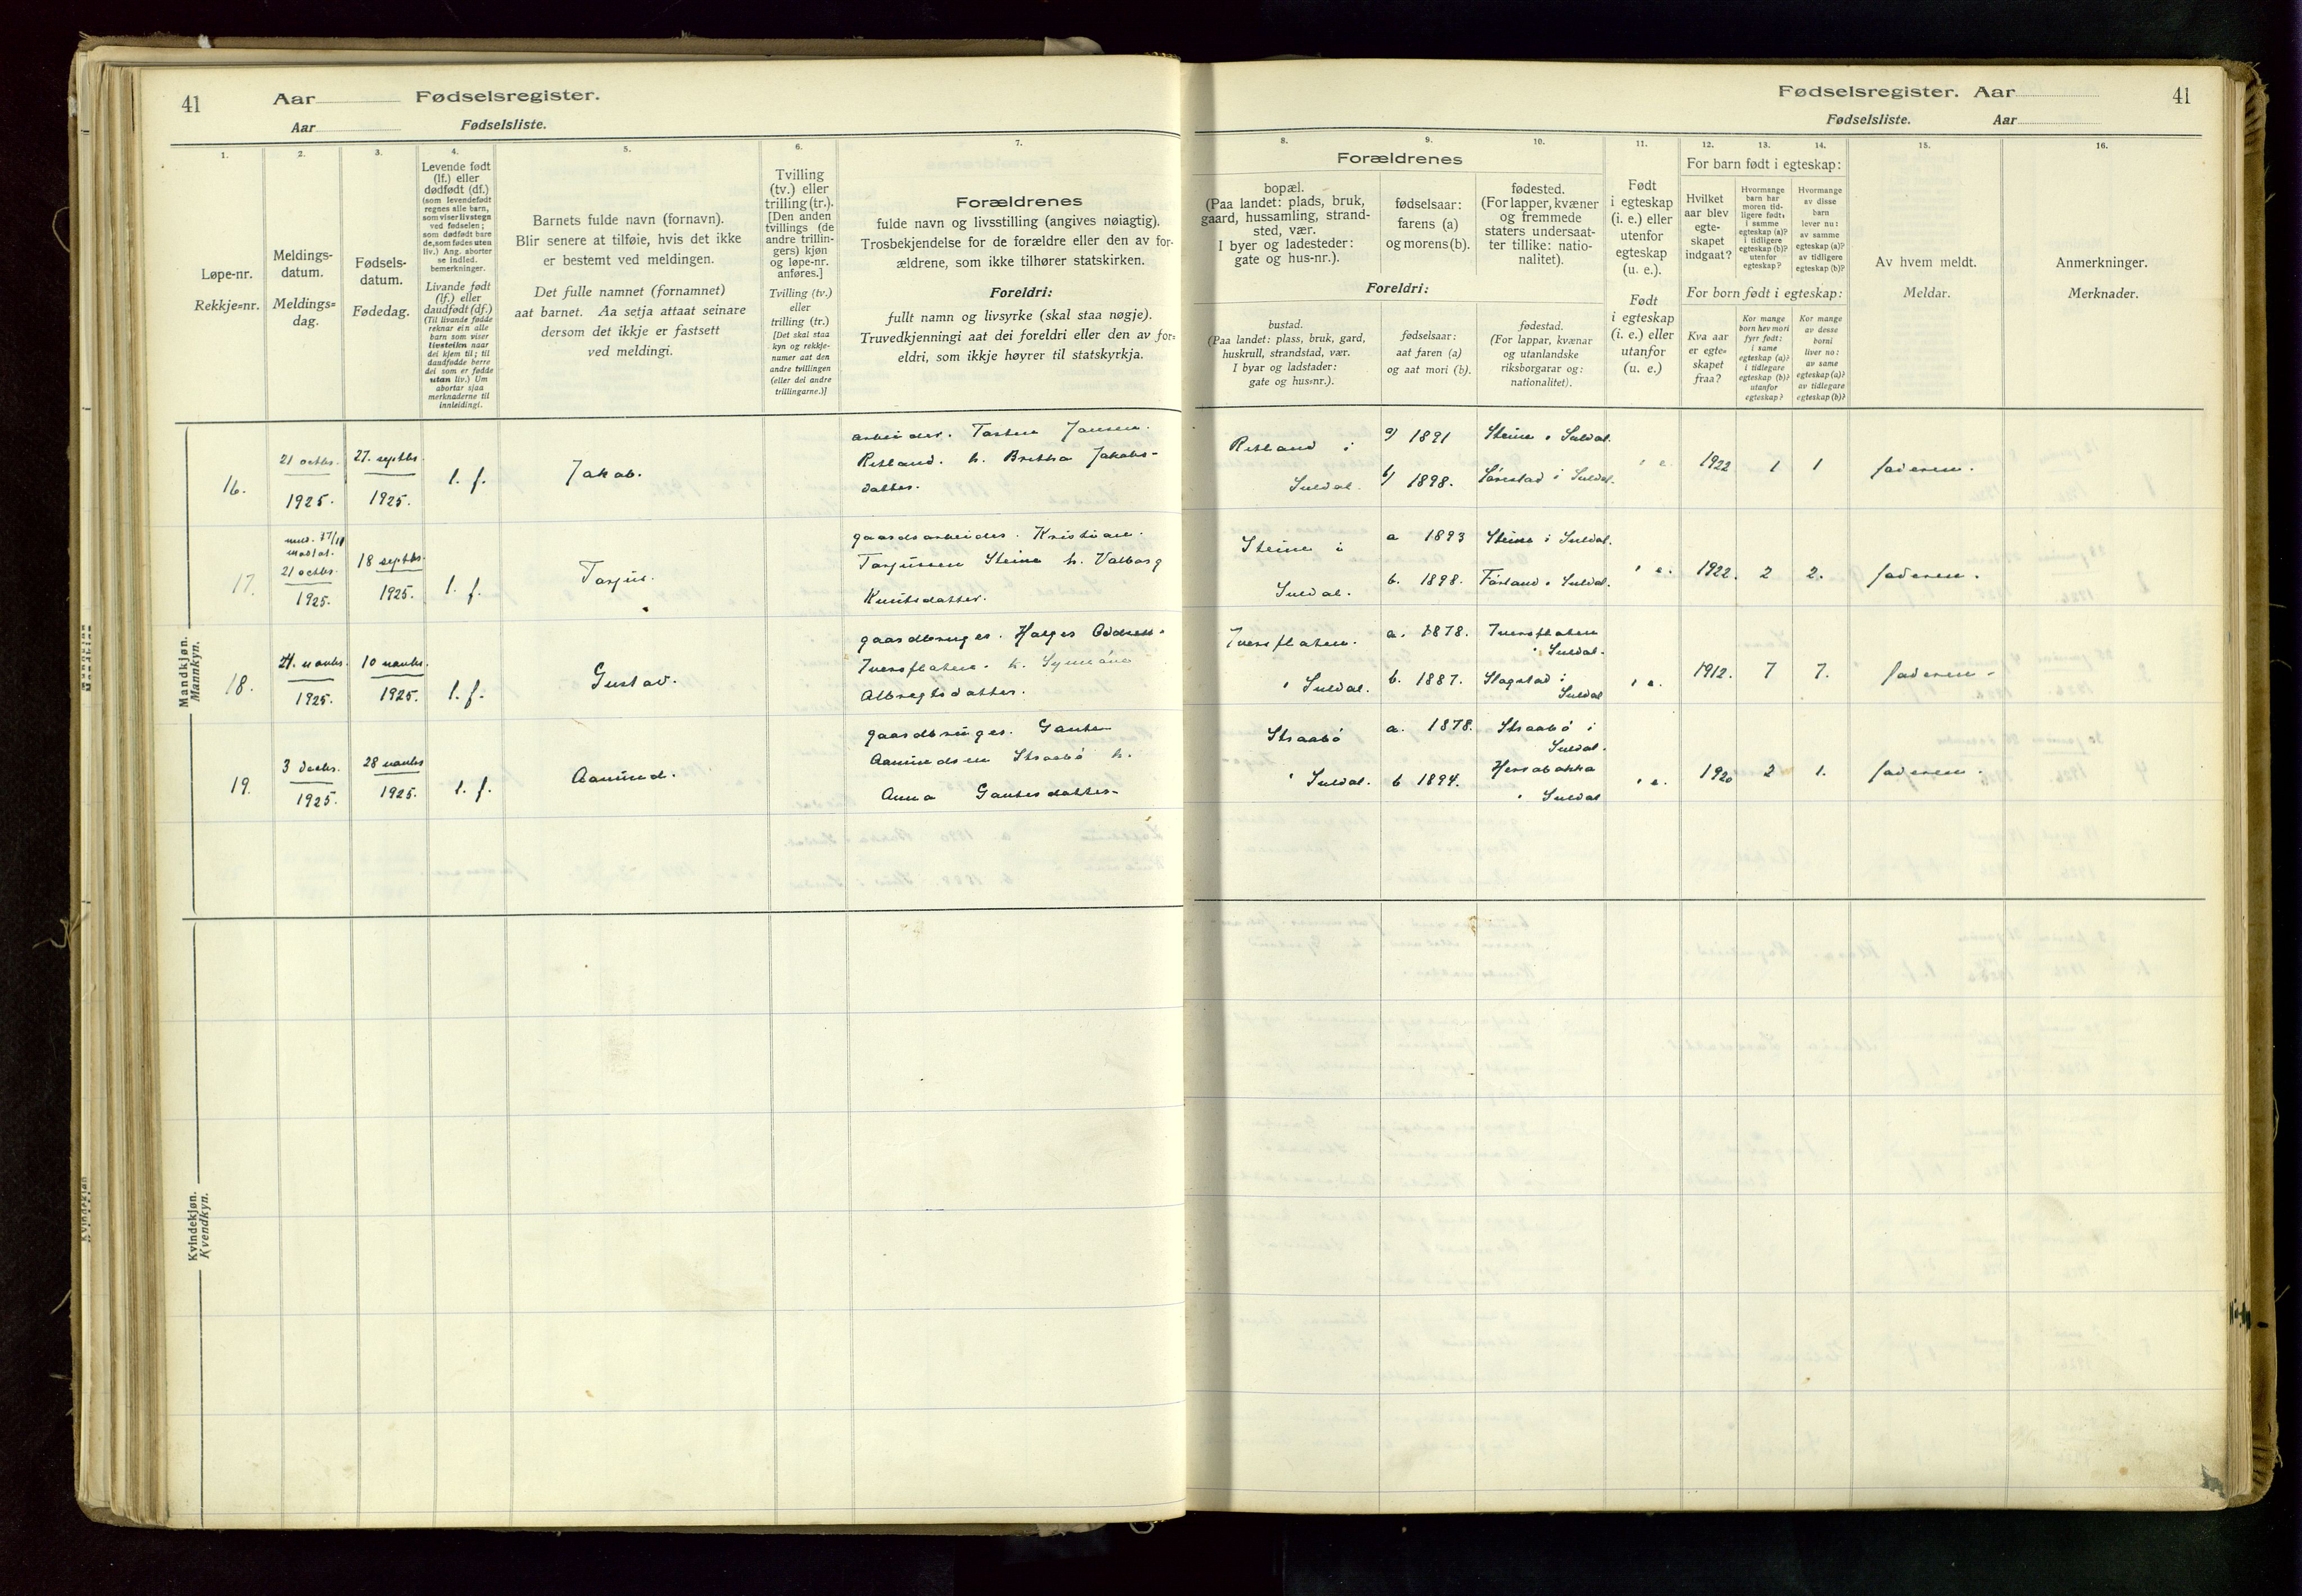 41 Aar Fødselsregister.
Aar Fødselsliste.
1.
Løpe-nr.
Rekkje=nr.
2.
Meldings-
datum.
Meldings=
dag.
3.
Fødsels-
datum.
Fødedag.
4.
Levende født
(lf.) eller
dødfødt (df.)
(som levendefødt
regnes alle barn,
som viser livstegn
ved fødselen;
som dødfødt bare
de, som fødes uten
liv.) Ang. aborter
se indled.
bemerkninger.
Livande født
(lf.) eller
daudfødt (df.)
(Til livande fødde
reknar ein alle
barn som viser
livsteikn naar
dei kjem til; til
daudfødde berre
dei som er fødde
utan liv.) Um
abortar sjaa
merknaderne til
innleidingi.
5.
Barnets fulde navn (fornavn).
Blir senere at tilføie, hvis det ikke
er bestemt ved meldingen.
Det fulle namnet (fornamnet)
aat barnet. Aa setja attaat seinare
dersom det ikkje er fastsett
ved meldingi.
6.
Tvilling
(tv.) eller
trilling (tr.).
[Den anden
tvillings (de
andre trillin-
gers) kjøn
og løpe-nr.
anføres.]
Tvilling (tv.)
eller
trilling (tr.)
[Det skal staa
kyn og rekkje-
numer aat den
andre tvillingen
(eller dei andre
trillingarne.)]
7.
Forældrenes
fulde navn og livsstilling (angives nøiagtig).
Trosbekjendelse for de forældre eller den av for-
ældrene, som ikke tilhører statskirken.
Foreldri:
fullt namn og livsyrke (skal staa nøgje).
Truvedkjenningi aat dei foreldri eller den av for-
eldri, som ikkje høyrer til statskyrkja.
Mandkjøn.
Mannkyn.
16.
21 octbr.
1925.
27. septbr.
1925.
l. f.
Jakob.
arbeider. Torten Jansen.
Retland. h. Britha Jakobs-
datter.
17.
21 octbr.
1925.
18 septbr.
1925.
l. f.
Torjus.
gaardsarbeider. Kristian.
Torjussen Steine h. Valborg
Knutsdatter.
18.
21. novbr.
1925.
10 novbr.
1925.
l. f.
Gustav.
gaardbruger. Holger Oddsen.
Iversflaten. h.
Albregtsdatter.
19.
3 decbr.
1925.
28 novbr
1925.
l. f.
Aamund.
gaardbruger. Gaute
Aamundsen Straabø h.
Anna Gautesdatter.
Kvindekjøn.
Kvendkyn.
Fødselsregister. Aar 41
Fødselsliste. Aar
Forældrenes
8.
bopæl.
(Paa landet: plads, bruk,
gaard, hussamling, strand-
sted, vær.
I byer og ladesteder:
gate og hus-nr.).
9.
fødselsaar:
farens (a)
og morens (b).
10.
fødested.
(For lapper, kvæner
og fremmede
staters undersaat-
ter tillike: natio-
nalitet).
Foreldri:
bustad.
(Paa landet: plass, bruk, gard,
huskrull, strandstad, vær.
I byar og ladstader:
gate og hus=nr.).
fødselsaar:
aat faren (a)
og aat mori (b).
fødestad.
(For lappar, kvænar
og utanlandske
riksborgarar og:
nationalitet).
11.
Født
i egteskap
(i. e.) eller
utenfor
egteskap
(u. e.).
Født
i egteskap
(i. e.) eller
utanfor
(u. e.)
For barn født i egteskap:
12.
Hvilket
aar blev
egte-
skapet
indgaat?
13.
Hvormange
barn har
moren tid-
ligere født:
i samme
egteskap (a)?
i tidligere
egteskap (b)?
utenfor
egteskap?
14.
Hvormange
av disse
barn
lever nu:
av samme
egteskap (a)?
av tidligere
egteskap (b)?
For born født i egteskap:
Kva aar
er egte=
skapet
fraa?
Kor mange
born hev mori
fyrr født:
i same
egteskap (a)?
i tidlegare
egteskap (b)?
utanfor
egteskap?
Kor mange
av desse
borni
liver no:
av same
egteskap (a)?
av tidlegare
egteskap (b)?
15.
Av hvem meldt.
Meldar.
16.
Anmerkninger.
Merknader.
Retland i
Suldal.
a) 1891
b) 1898.
Steine i Suldal.
i Suldal.
i e.
1922
1
1
faderen.
Steine i
Suldal.
a 1893
b. 1898.
Steine i Suldal.
Førland i Suldal.
i e.
1922.
2
2.
faderen.
Iversflaten.
i Suldal.
a. 1878.
b. 1887.
Iversflaten
i Suldal.
Slagstad i
Suldal
i e.
1912.
7
7.
faderen.
Straabø
i Suldal.
a. 1878.
b 1894.
Straabø i
Suldal.
Herabakka
i Suldal
i e.
1920
2
1.
faderen.